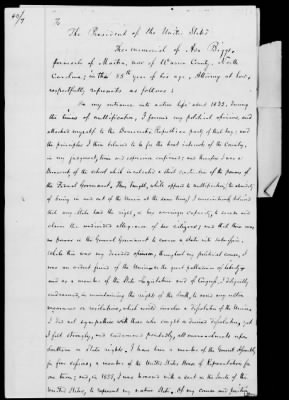 To
The President of the United States
The memorial of Asa Biggs,
formerly of Martin, now of Warren County, North
Carolina; in the 55th year of his age, Attorney at law,
respectfully represents as follows:
On my entrance into active life about 1833, during
the times of nullification, I formed my political opinions, and
attached myself to the Democratic Republican party of that day; and
the principles I then believed to be for the best interests of the Country,
in my judgment, time and experience confirmed; and therefore I was a
Democrat of the school which inculcated a strict construction of the powers of the
Federal Government. Thus taught, while opposed to nullification, (the absurdity
of being in and out of the Union at the same time) I conscientiously believed
that any State has the right, in her sovereign capacity, to secede and
claim the undivided allegiance of her citizens; and that there was
no power in the General Government to coerce a state into submission.
While this was my decided opinion, throughout my political career, I
was an ardent friend of the Union as the great palladium of liberty;
and as a member of the State Legislature and of Congress, I diligently
endeavored, in maintaining the rights of the South, to avoid any active
measures or resolutions, which would involve a dissolution of the Union.
I did not sympathise with those who sought or desired dissolution; yet
I felt strongly, and condemned pointedly, all encroachments upon
southern or State rights. I have been a member of the General Assembly
for four sessions; a member of the United States House of Representatives for
one term; and, in 1855, I was honored with a seat in the Senate of the
United States, to represent my native State. Of my course and position